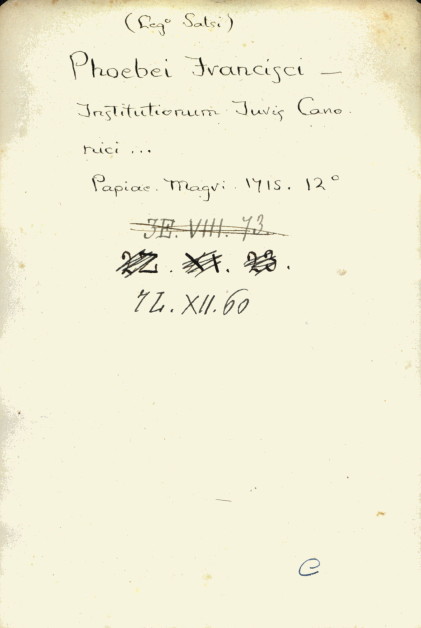 (Leg° Salsi)
Phoebei Francisci —
Institutionum Juris Cano
nici ...
Papiae. Magri. 1715. 12°
3E. VIII. 73.
22. XI. 23.
7L. XII. 60
C